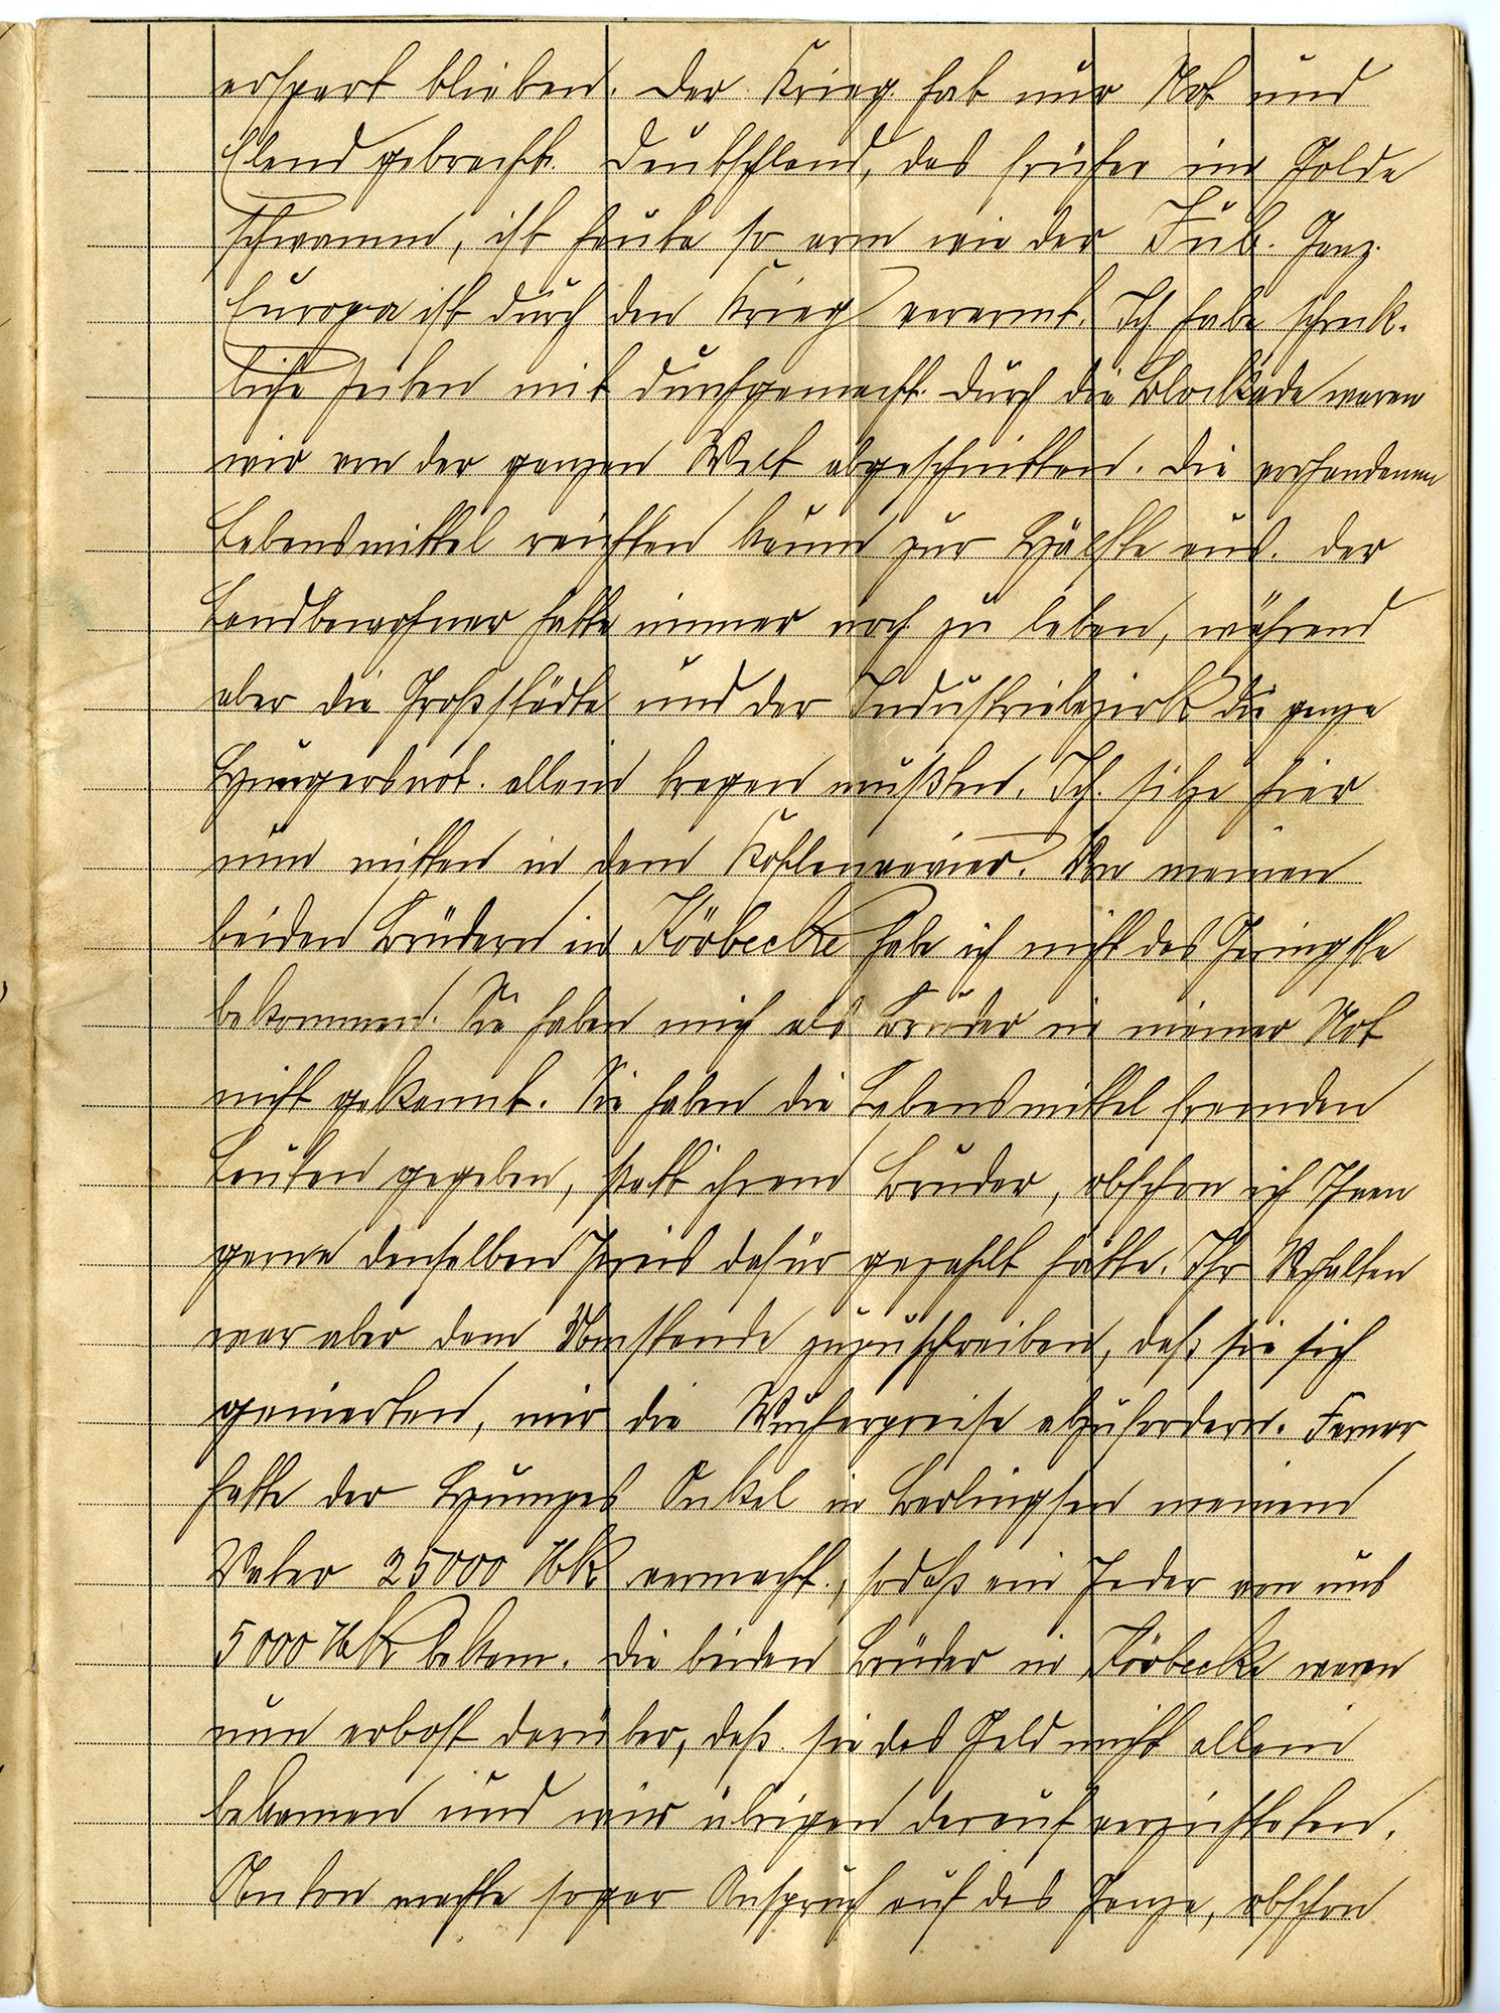 erspart blieben. Der Krieg hat nur Not und
Elend gebracht. Deutschland, das früher im Golde
schwamm, ist heute so arm wie der Job. Ganz
Europa ist durch den Krieg verarmt. Ich habe schrek-
liche Zeiten mit durchgemacht. Durch die Blockade waren
wir von der ganzen Welt abgeschnitten. Die vorhandenen
Lebensmittel reichten kaum zur Hälfte aus. Der
Landbewohner hatte immer noch zu leben, während
aber die Großstädte und der Industriebezirk die ganze
Hungersnot allein tragen mußten. Ich sitze hier
nun mitten in dem Kohlenrevier. Von meinen
beiden Brüdern in Körbecke habe ich nicht das Geringste
bekommen. Sie haben mich als Bruder in meiner Not
nicht gekannt. Sie haben die Lebensmittel fremden
Leuten gegeben, statt ihrem Bruder, obschon ich Ihnen
gerne denselben Preis dafür gezahlt hätte. Ihr Verhalten
war aber dem Umstande zuzuschreiben, daß sie sich
genierten, mir die Wucherpreise abzufordern. Ferner
hatte der Onkel in Berlingsen meinem
Vater 25000 Mk vermacht, sodaß ein Jeder von uns
5000 Mk bekam. Die beiden Brüder in Körbecke waren
nun erbost darüber, daß sie das Geld nicht allein
bekamen und wir übrigen darauf verzichteten.
Anton machte sogar Anspruch auf das Ganze, obschon